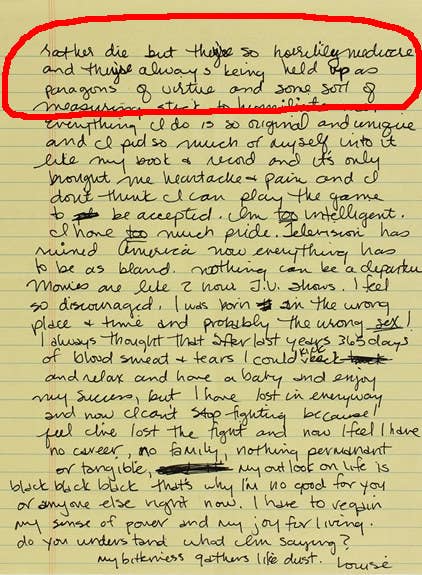 rather die but they're so horribly mediocre
and they're always being held up as
paragons of virtue and some sort of
measuring stick to humiliate me.
everything I do is so original and unique
and I put so much of myself into it
like my book & record and it's only
brought me heartache & pain and I
dont think I can play the game
to be accepted. Im too intelligent.
I have too much pride. Television has
ruined America now everything has
to be as bland. nothing can be a departure
Movies are like 2 hour T.V. shows. I feel
so discouraged. I was born in the wrong
place & time and probably the wrong sex!
I always thought that after last years 365 days
of blood sweat & tears I could
and relax and have a baby and enjoy
my success, but I have lost in everyway
and now I can't stop fighting because I
feel I've lost the fight and now I feel I have
no career, no family, nothing permanent
or tangible, my outlook on life is
black black black that's why I'm no good for you
or anyone else right now. I have to regain
my sense of power and my joy for living.
do you understand what Im saying?
my bitterness gathers like dust. Louise